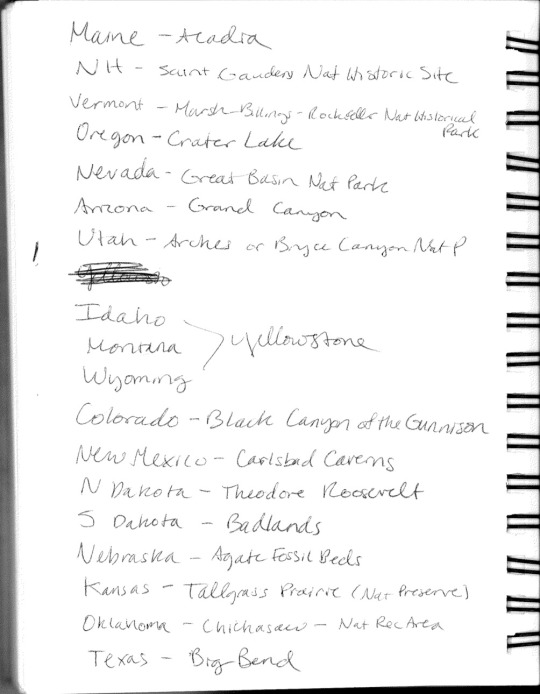 Maine - Acadia
NH - Saint Gaudens Nat Historic Site
Vermont - Marsh-Billings-Rockefeller Nat Historical
Park
Oregon - Crater Lake
Nevada - Great Basin Nat Park
Arizona - Grand Canyon
Utah - Arches or Bryce Canyon Nat P
Idaho
Montana
Yellowstone
Wyoming
Colorado - Black Canyon of the Gunnison
New Mexico - Carlsbad Caverns
N Dakota - Theodore Roosevelt
S Dakota - Badlands
Nebraska - Agate Fossil Beds
Kansas - Tallgrass Prairie (Nat Preserve)
Oklahoma - Chichasaw - Nat Rec Area
Texas - Big Bend